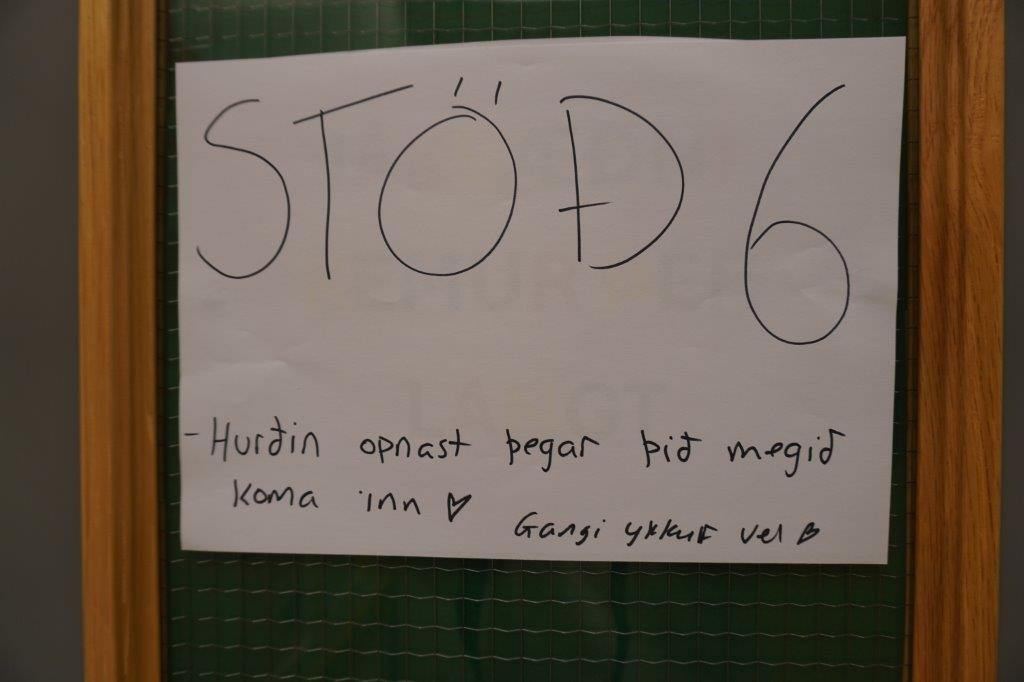 STÖÐ 6
- Hurðin opnast þegar þið megið
koma inn ♡
Gangi ykkur vel ♡